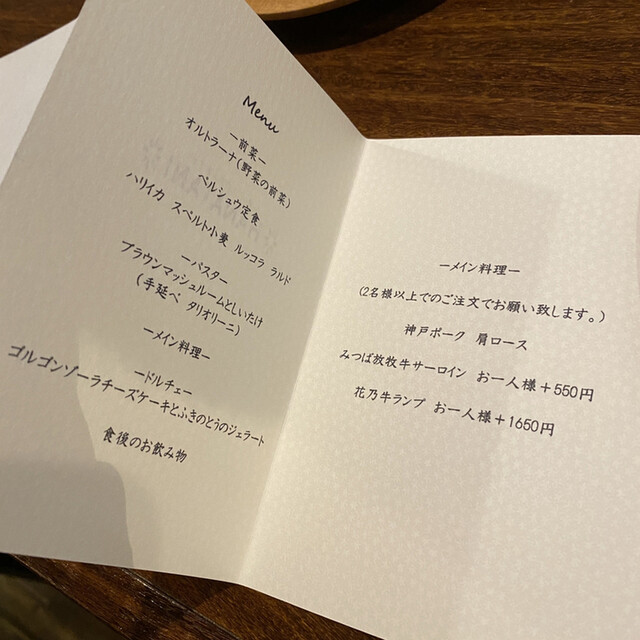 Menu
ー前菜ー
オルトラーナ(野菜の前菜)
ペルシュウ定食
ハリイカ スペルト小麦 ルッコラ ラルド
ーパスター
ブラウンマッシュルームとしいたけ
(手延べ タリオリーニ)
ーメイン料理ー
ードルチェー
ゴルゴンゾーラチーズケーキとふきのとうのジェラート
食後のお飲み物
ーメイン料理ー
(2名様以上でのご注文でお願い致します。)
神戸ポーク 肩ロース
みつば放牧牛サーロイン お一人様+550円
花乃牛ランプ お一人様+1650円